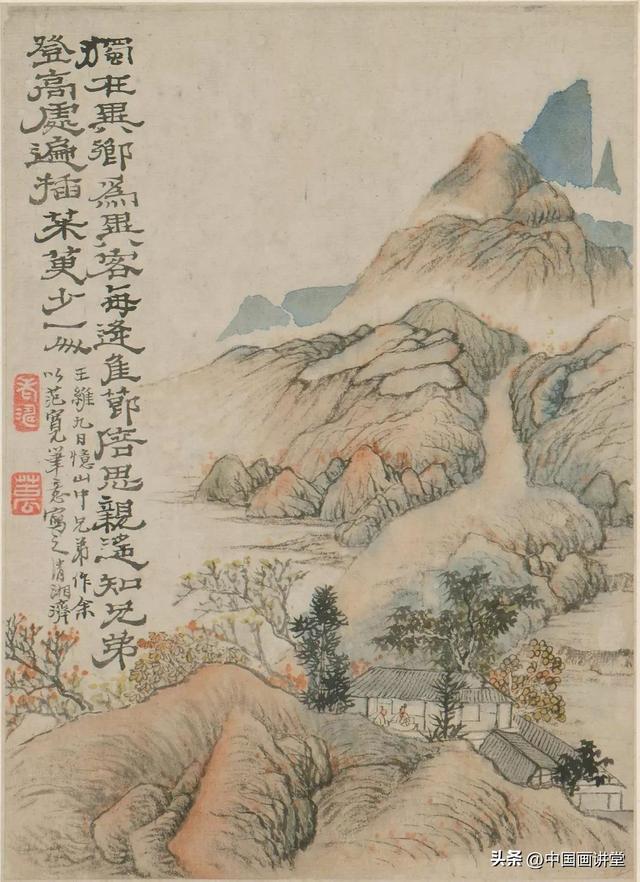 獨在異鄉為異客每逢佳節倍思親遙知兄弟
登高處遍插茱萸少一人
王維九日憶山中兄弟作余
以范寬筆意寫之清湘濟
头条 @中国画讲堂